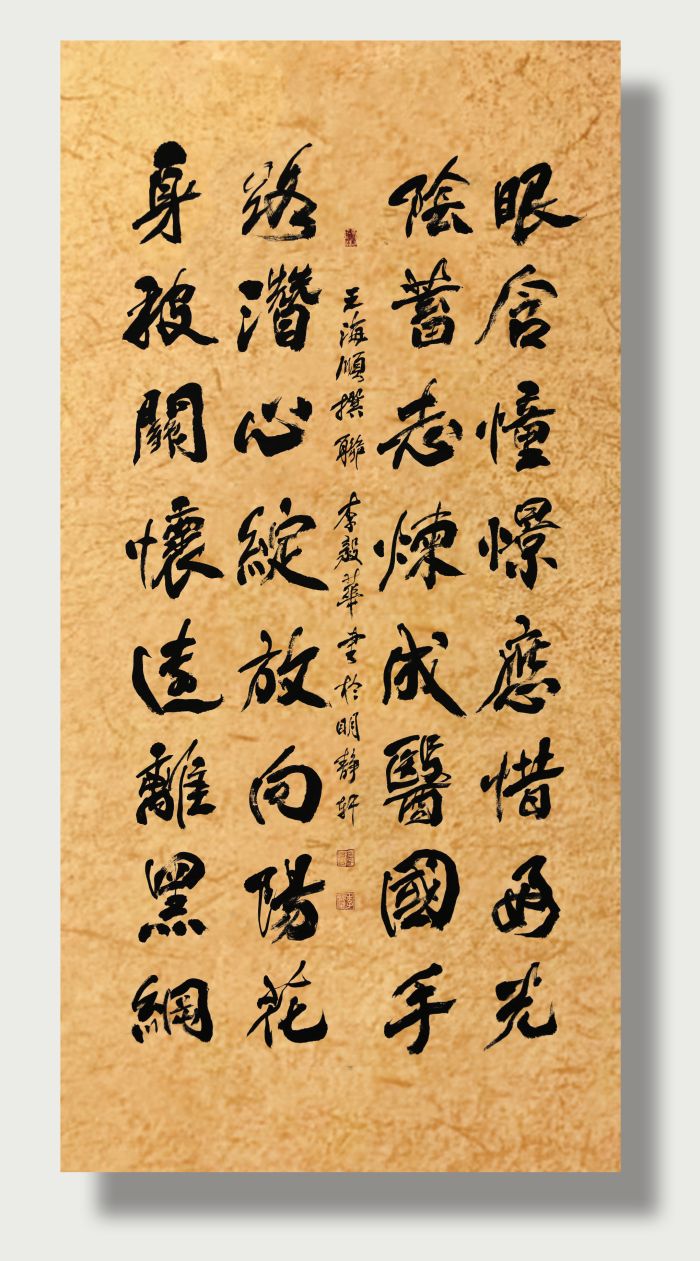 眼含憧憬應惜好光
陰蓄志煉成醫國手
身被關懷遠離黑網
路潛心綻放向陽花
王海順撰聯 李毅華書於明靜軒